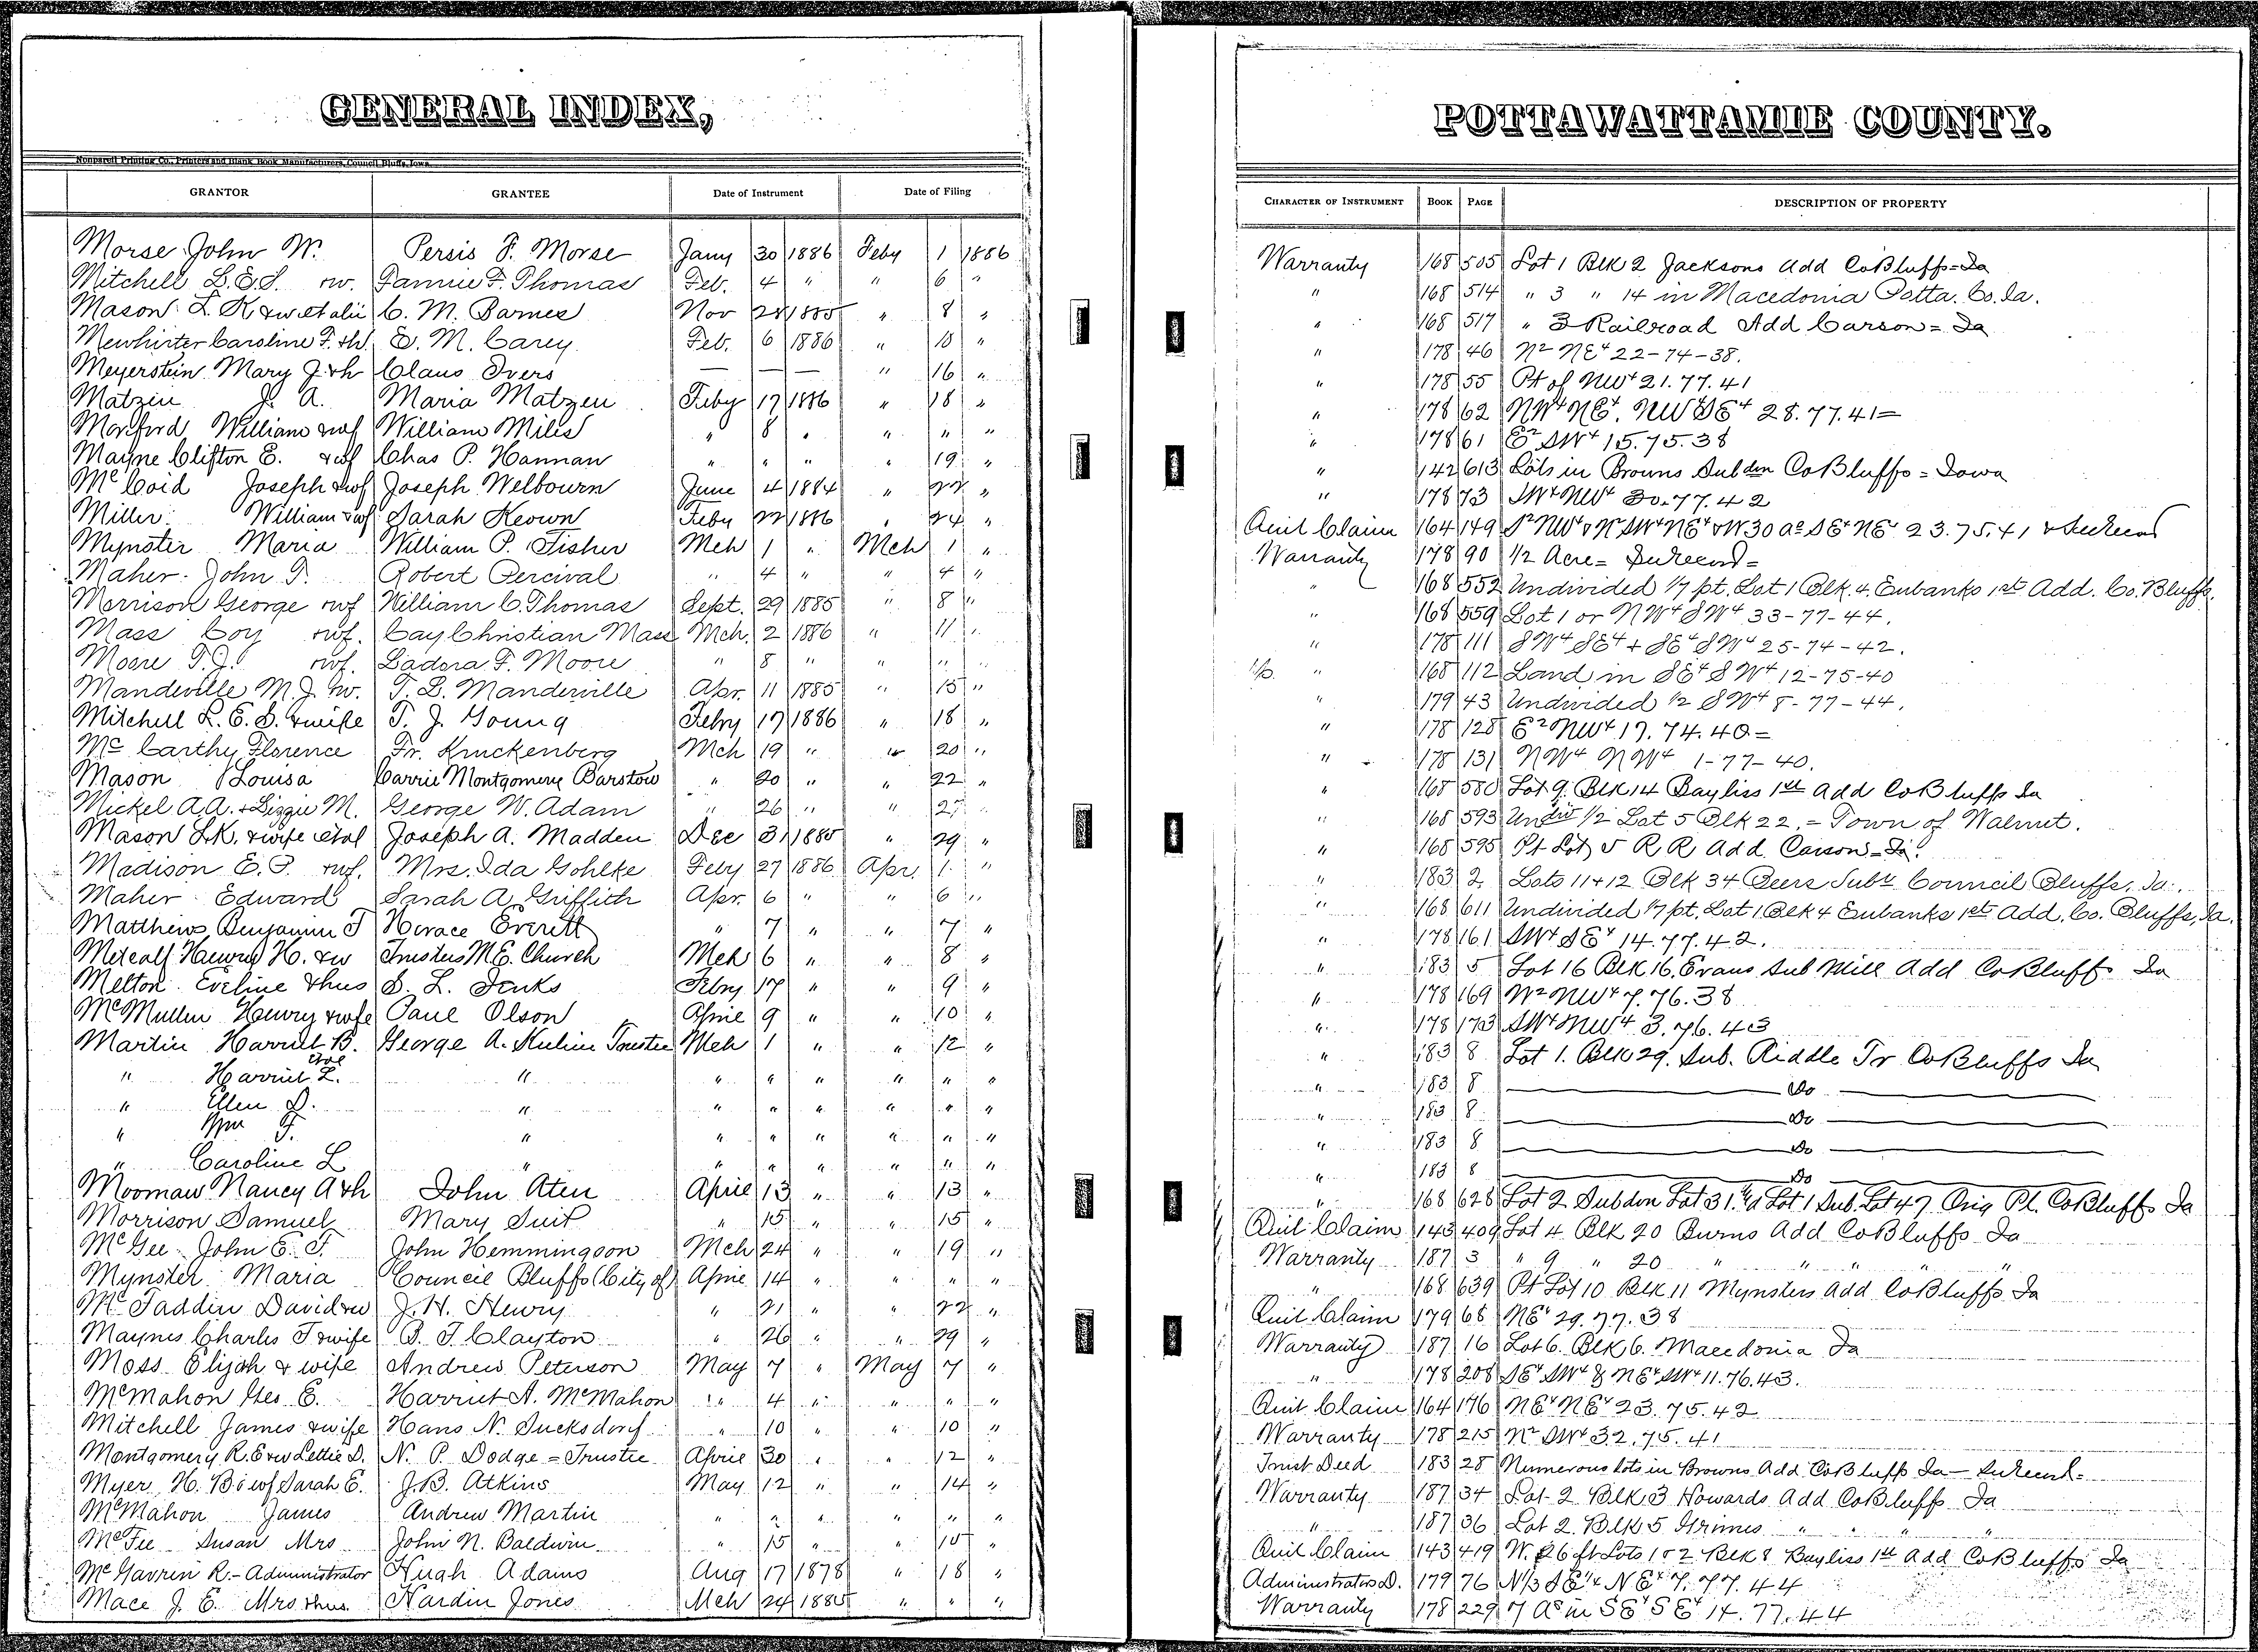 GENERAL INDEX,
Nonpareil Printing Co., Printers and Blank Book Manufacturers, Council Bluffs, Iowa.
GRANTOR GRANTEE Date of Instrument Date of Filing
Morse John W. Persis F. Morse Jany 30 1886 Feby 1 1886
Mitchell L.E.S. &w. Fannie F. Thomas Feb. 4 " " 6 "
Mason L. K. &w et alii C. M. Barnes Nov 28 1885 " 8 "
Mewhirter Caroline F. &h. E. M. Carey Feb. 6 1886 " 10 "
Meyerstein Mary J &h Claus Ivers — — — " 16 "
Matzen J. A. Maria Matzen Feby 17 1886 " 18 "
Morford William &wf William Miles " 8 " " " "
Mayne Clifton E. &wf Chas P. Hannan " " " " 19 "
McCoid Joseph &wf Joseph Welbourn June 4 1884 " 22 "
Miller William &wf Sarah Keown Feby 22 1886 " 24 "
Mynster Maria William P. Fisher Mch 1 " Mch 1 "
Maher John P. Robert Percival " 4 " " 4 "
Morrison George &wf William C. Thomas Sept. 29 1885 " 8 "
Mass Coy &wf. Cay Christian Mass Mch. 2 1886 " 11 "
Moore T.J. &wf. Ladora F. Moore " 8 " " " "
Mandeville M.J. &w. T. L. Manderville Apr. 11 1885 " 15 "
Mitchell L. E. S. &wife T. J. Young Feby 17 1886 " 18 "
McCarthy Florence Fr. Kruckenberg Mch 19 " " 20 "
Mason Louisa Carrie Montgomery Barstow " 20 " " 22 "
Mickel A.A. & Lizzie M. George W. Adam " 26 " " 27 "
Mason L.K. &wife etal Joseph A. Madden Dec 31 1885 " 29 "
Madison E. P. &wf. Mrs. Ida Gohlke Feby 27 1886 Apr. 1 "
Maher Edward Sarah A. Griffith Apr. 6 " " 6 "
Matthews Benjamin T Horace Everett " 7 " " 7 "
Metcalf Henry H. &w Trustees M.E. Church Mch 6 " " 8 "
Melton Eveline &hus S. L. Jenks Feby 17 " " 9 "
McMullen Henry &wife Paul Olson April 9 " " 10 "
Martin Harriet B. etal George A. Keeline Trustee Mch 1 " " 12 "
" Harriet L. " " " " " " "
" Ellen D. " " " " " " "
" Wm F. " " " " " " "
" Caroline L " " " " " " "
Moomaw Nancy A &h John Aten April 13 " " 13 "
Morrison Samuel Mary Suit " 15 " " 15 "
McGee John E. T. John Hemmingson Mch 24 " " 19 "
Mynster Maria Council Bluffs (City of) April 14 " " " "
McFaddin David &w J. H. Henry " 21 " " 22 "
Maynes Charles T &wife B. F. Clayton " 26 " " 29 "
Moss Elijah & wife Andrew Peterson May 7 " May 7 "
McMahon Geo E. Harriet A. McMahon " 4 " " " "
Mitchell James &wife Hans N. Sucksdorf " 10 " " 10 "
Montgomery R.E &w Lettie D. N. P. Dodge = Trustee April 30 " " 12 "
Myer H. B & wf Sarah E. J.B. Atkins May 12 " " 14 "
McMahon James Andrew Martin " 2 " " " "
McFee Susan Mrs John N. Baldwin " 15 " " 15 "
McGavren R. - Administrator Hugh Adams Aug 17 1878 " 18 "
Mace J. E. Mrs &hus. Hardin Jones Mch 24 1885 " " "
POTTAWATTAMIE COUNTY.
CHARACTER OF INSTRUMENT BOOK PAGE DESCRIPTION OF PROPERTY
Warranty 168 505 Lot 1 Blk 2 Jacksons Add CoBluffs = Ia
" 168 514 " 3 " 14 in Macedonia Potta. Co. Ia.
" 168 517 " 3 Railroad Add Carson = Ia
" 178 46 N2 NE4 22-74-38.
" 178 55 Pt of NW4 21.77.41
" 178 62 NW4 NE4. NW SE4 28.77.41 =
" 178 61 E2 SW4 15.75.38
" 142 613 Lots in Browns Subdn CoBluffs = Iowa
" 178 73 SW4 NW4 30.77.42
Quit Claim 164 149 S2 NW4 & N2 SW4 NE4 & W 30 ac SE4 NE4 23.75.41 & See Record
Warranty 178 90 1/2 Acre = See Record =
" 168 552 Undivided 1/7 pt. Lot 1 Blk. 4. Eubanks 1st Add. Co. Bluffs.
" 168 559 Lot 1 or NW4 SW4 33-77-44.
" 178 111 SW4 SE4 + SE4 SW4 25-74-42.
" 168 112 Land in SE4 SW4 12-75-40
" 179 43 Undivided 1/2 SW4 8-77-44.
" 178 128 E2 NW4 17.74.40 =
" 178 131 NW4 NW4 1-77-40.
" 168 580 Lot 9. Blk 14 Bayliss 1st Add CoBluffs Ia
" 168 593 Undiv 1/2 Lot 5 Blk 22. = Town of Walnut.
" 168 595 Pt Lot 5 R R Add Carson = Ia.
" 183 2 Lots 11+12 Blk 34 Beers Subn Council Bluffs, Ia.
" 168 611 Undivided 1/7 pt. Lot 1 Blk 4 Eubanks 1st Add. Co. Bluffs, Ia.
" 178 161 SW4 SE4 14.77.42.
" 183 5 Lot 16 Blk 16. Evans Sub Mill Add CoBluffs Ia
" 178 169 W2 NW4 7.76.38
" 178 173 SW4 NW4 3.76.43
" 183 8 Lot 1. Blk 29. Sub. Riddle Tr CoBluffs Ia
" 183 8 Do
" 183 8 Do
" 183 8 Do
" 183 8 Do
" 168 628 Lot 2 Subdon Lot 31. of Lot 1 Sub. Lot 47 Orig Pl. CoBluffs Ia
Quit Claim 143 409 Lot 4 Blk 20 Burns Add CoBluffs Ia
Warranty 187 3 " 9 " 20 " " " "
" 168 639 Pt Lot 10 Blk 11 Mynsters Add CoBluffs Ia
Quit Claim 179 68 NE4 29.77.38
Warranty 187 16 Lot 6. Blk 6. Macedonia Ia
" 178 208 SE4 SW4 & NE4 SW4 11.76.43.
Quit Claim 164 176 NE4 NE4 23.75.42
Warranty 178 215 N2 SW4 32.75.41
Trust Deed 183 28 Numerous lots in Browns Add CoBluffs Ia — See Record =
Warranty 187 34 Lot 2 Blk 3 Howards Add CoBluffs Ia
" 187 36 Lot 2. Blk 5 Grimes " " "
Quit Claim 143 419 W. 26 ft Lots 1 & 2 Blk 8 Bayliss 1st Add CoBluffs Ia
Administrators D. 179 76 N1/3 SE4 NE4 7.77.44
Warranty 178 229 7 Ac in SE4 SE4 14.77.44